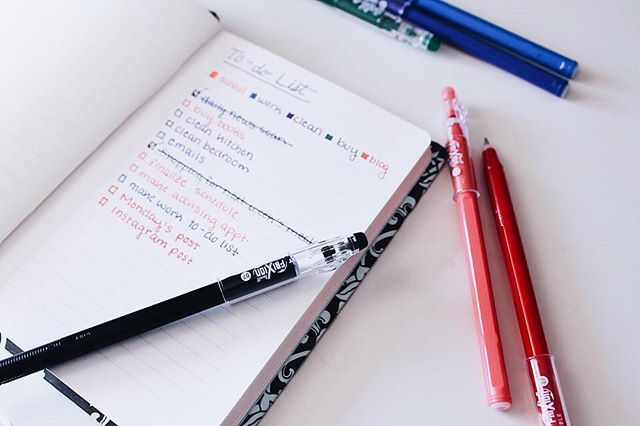 To-do List
school work clean buy blog
buy books
clean kitchen
clean bedroom
emails
finalize schedule
make advising appt.
make work to-do list
Monday's post
Instagram post
FriXion